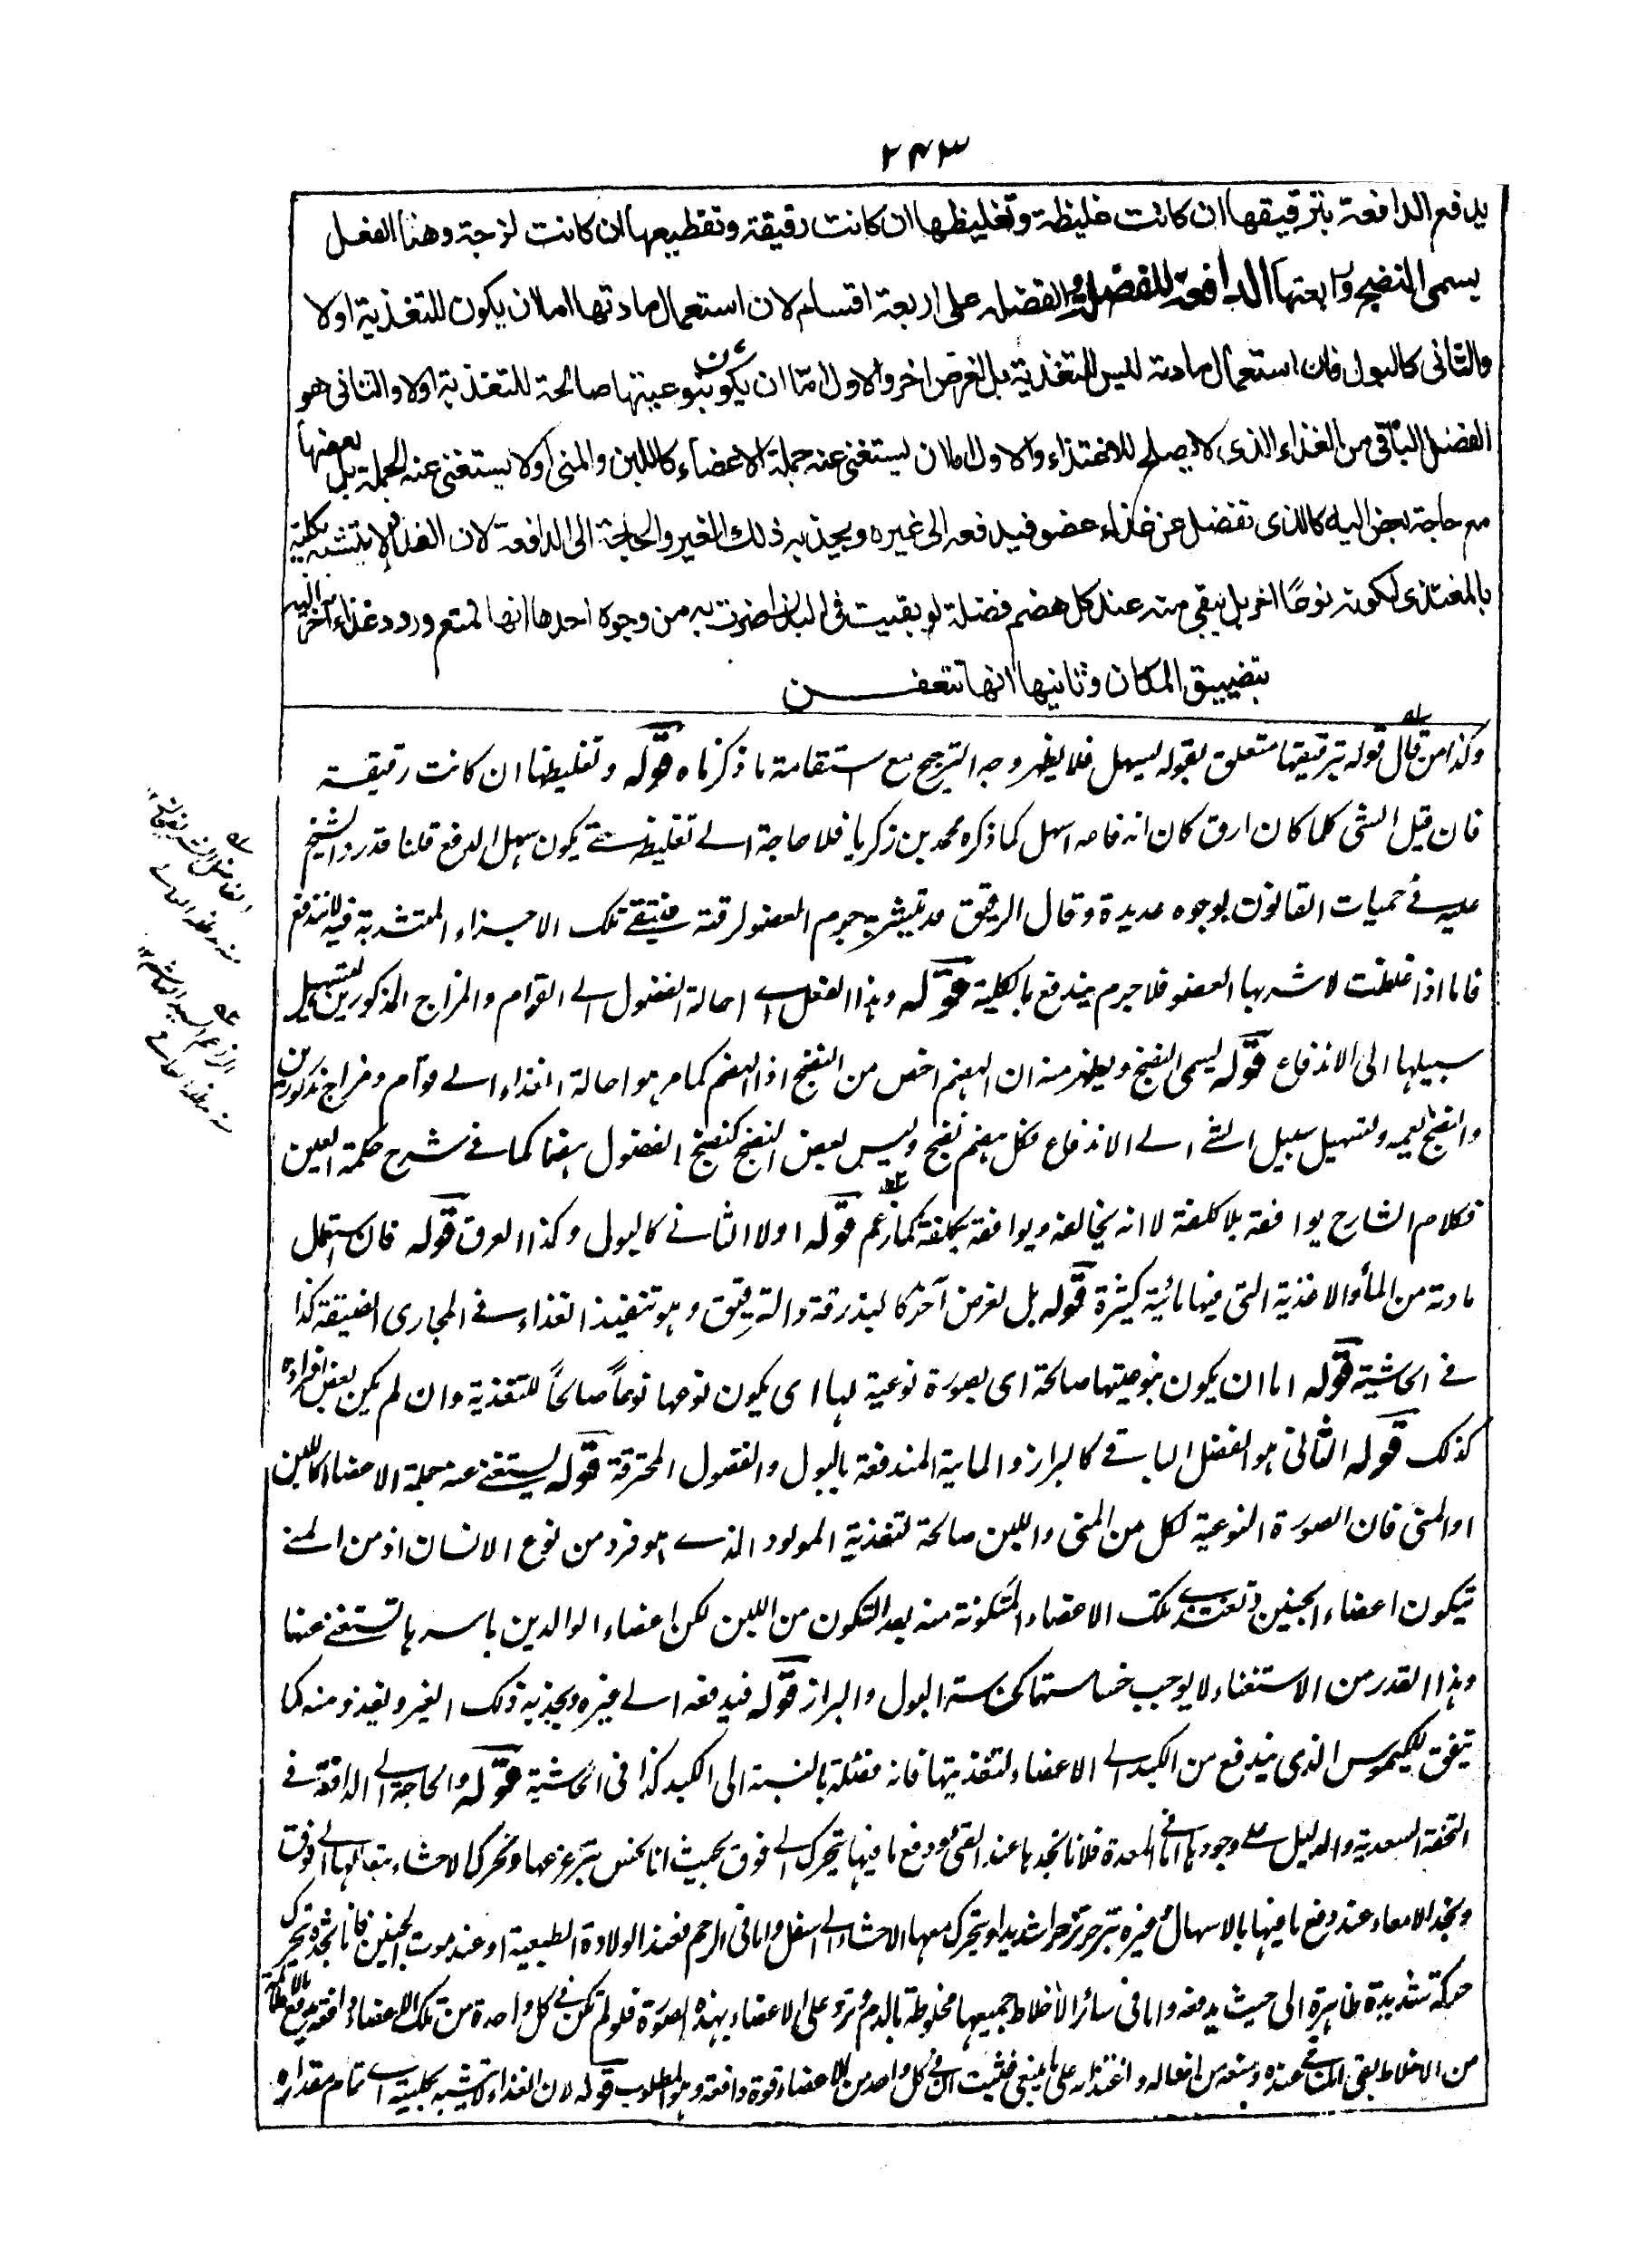 ٢٤٣
يدفع الدافعة بترقيقها ان كانت غليظة وتغليظها ان كانت رقيقة وتقطيعها ان كانت لزجة وهذا الفعل
يسمى النضج ورابعتها الدافعة للفضل والفضلة على اربعة اقسام لان استعمال مادتها اما ان يكون للتغذية اولا
والثانى كالبول فان استعمال مادته ليس للتغذية بل لغرض اخر والاول اما ان يكون بنوعيتها صالحة للتغذية اولا والثانى هو
الفضل الباقى من الغذاء الذى لا يصلح للاغتذاء والاول اما ان يستغنى عنه جملة الاعضاء كاللبن والمنى او لا يستغنى عنه الجملة بل بعضها
مع حاجة بعض اليه كالذى تفضل عن غذاء عضو فيدفعه الى غيره ويجذبه ذلك الغير والحاجة الى الدافعة لان الغذاء لا يتشبه بكليته
بالمغتذى لكونه نوعًا اخر بل يبقى منه عند كل هضم فضلة لو بقيت فى البدن اضرت به من وجوه احدها انها تمنع ورود غذاء اخر اليه
بتضييق المكان وثانيها انها تتعفن
وكذا من قال قوله بترقيقها متعلق بقوله ليسهل فلا يظهر وجه الترجيح مع استقامة ما ذكرناه قوله وتغليظها ان كانت رقيقة
فان قيل الشى كلما كان ارق كان اندفاعه اسهل كما ذكره محمد بن زكريا فلا حاجة الے تغليظه حتے يكون سهل الدفع قلنا قد رد الشيخ
عليه فے حميات القانون بوجوه عديدة وقال الرقيق قد يتشربه جرم العضو لرقته فيبقے تلك الاجزاء المتشربة فيه لا تندفع
فاما اذا غلظت لا شربها العضو فلا جرم يندفع بالكلية قوله وهذا الفعل اے احالة الفضول الے القوام والمزاج المذكورين لتسهيل
سبيلها الى الاندفاع قوله يسمى النضج ويظهر منه ان الهضم اخص من النضج اذ الهضم كما مر هو احالة الغذاء الے قوام ومزاج مذكورين
والنضج يعمه وتسهيل سبيل الشے الے الاندفاع فكل هضم نضج وليس بعض النضج كنضج الفضول هضما كما فے شرح حكمة العين
فكلام الشارح يوافقه بلا كلفة لا انه يخالفه ويوافقه بكلفة كما زعم قوله اولا الثانے كالبول وكذا العرق قوله فان استعمال
مادته من الماء والاغذية التى فيها مائية كثيرة قوله بل لغرض آخر كالبذرقة والترقيق وهو تنفيذ الغذاء فے المجارى الضيقة كذا
فے الحاشية قوله اما ان يكون بنوعيتها صالحة اى بصورة نوعية لها اى يكون نوعها نوعاً صالحاً للتغذية وان لم يكن بعض افراده
كذلك قوله الثانى هو الفضل الباقے كالبراز والمائية المندفعة بالبول والفضول المحترقة قوله يستغنے عنه جملة الاعضاء كاللبن
او المنى فان الصورة النوعية لكل من المنى واللبن صالحة لتغذية المولود الذے هو فرد من نوع الانسان اذ من المنے
يتكون اعضاء الجنين وتغتذے تلك الاعضاء المتكونة منه بعد التكون من اللبن لكن اعضاء الوالدين باسرها تستغنے عنها
وهذا القدر من الاستغناء لا يوجب خساستها كخساسة البول والبراز قوله فيدفعه الے غيره ويجذبه ذلك الغير ويغيذو منه كما
يتفق للكيموس الذى يندفع من الكبد الے الاعضاء لتغذيتها فانه فضلة بالنسبة الى الكبد كذا فى الحاشية قوله والحاجة الے الدافعة فے
التحفة السعدية والدليل علے وجودها اما فے المعدة فلانا نجدها عند القئ ودفع ما فيها يتحرك الے فوق بحيث انا نحس بتزعزعها وتحرك الاحشاء بتعالها الے فوق
ونجد الامعاء عند دفع ما فيها بالاسهال وغيره تتزحزحا شديدا ويتحرك معها الاحشاء الے اسفل واما فى الرحم فعند الولادة الطبيعية او عند موت الجنين فانا نجده يتحرك
حركة شديدة ظاهرة الى حيث يدفعه واما فى سائر الاخلاط جميعها مخلوطة بالدم وترد على الاعضاء بهذه الصورة فلو لم تكن فے كل واحدة من تلك الاعضاء دافعة
من الاخلاط بقى المنافے عنده ومنعه من افعاله واغتذائه على ما ينبغى فثبت ان فے كل واحد من الاعضاء قوة دافعة وهو المطلوب قوله لان الغذاء لا يتشبه بكليته اے تمام مقداره